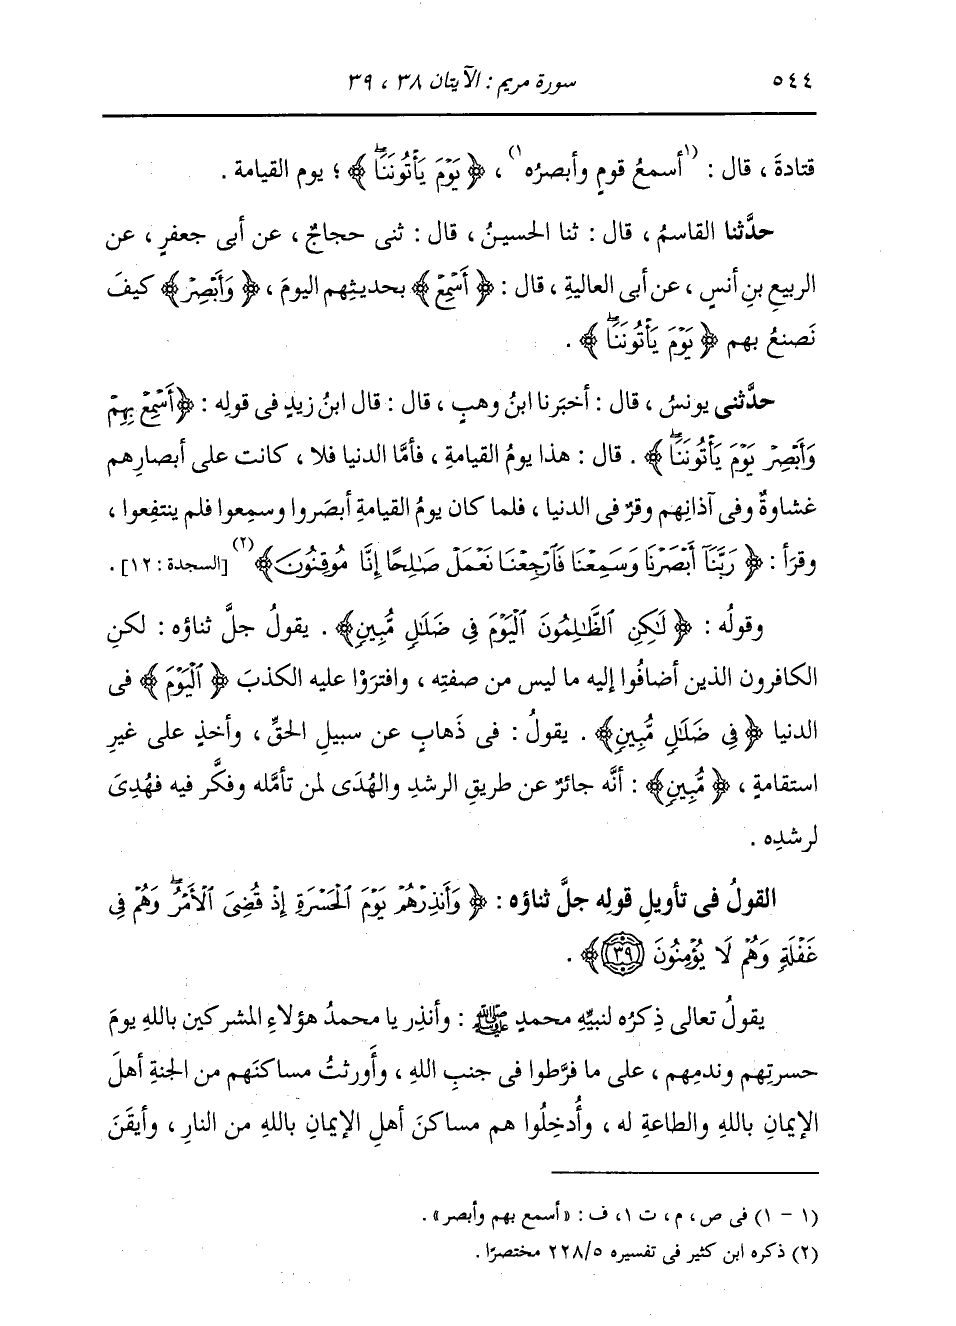 ٥٤٤ سورة مريم : الآيتان ٣٨ ، ٣٩
قتادةَ ، قال : (١)أسمعُ قومٍ وأبصرُه(١) ، ﴿ يَوْمَ يَأْتُونَنَاۖ ﴾ ؛ يوم القيامة .
حدَّثنا القاسمُ ، قال : ثنا الحسينُ ، قال : ثنى حجاجٌ ، عن أبى جعفرٍ ، عن
الربيعِ بنِ أنسٍ ، عن أبى العاليةِ ، قال : ﴿ أَسْمِعْ ﴾ بحديثِهم اليومَ ، ﴿ وَأَبْصِرْ ﴾ كيفَ
نَصنعُ بهم ﴿ يَوْمَ يَأْتُونَنَاۖ ﴾ .
حدَّثنى يونسُ ، قال : أخبَرنا ابنُ وهبٍ ، قال : قال ابنُ زيدٍ فى قولِه : ﴿ أَسْمِعْ بِهِمْ
وَأَبْصِرْ يَوْمَ يَأْتُونَنَاۖ ﴾ . قال : هذا يومُ القيامةِ ، فأمَّا الدنيا فلا ، كانت على أبصارِهم
غشاوةٌ وفى آذانِهم وقرٌ فى الدنيا ، فلما كان يومُ القيامةِ أبصَروا وسمِعوا فلم ينتفِعوا ،
وقرَأ : ﴿ رَبَّنَآ أَبْصَرْنَا وَسَمِعْنَا فَٱرْجِعْنَا نَعْمَلْ صَـٰلِحًا إِنَّا مُوقِنُونَ ﴾(٢) [السجدة : ١٢] .
وقولُه : ﴿ لَـٰكِنِ ٱلظَّـٰلِمُونَ ٱلْيَوْمَ فِى ضَلَـٰلٍ مُّبِينٍ ﴾ . يقولُ جلَّ ثناؤه : لكنِ
الكافرون الذين أضافُوا إليه ما ليس من صفتِه ، وافترَوْا عليه الكذبَ ﴿ ٱلْيَوْمَ ﴾ فى
الدنيا ﴿ فِى ضَلَـٰلٍ مُّبِينٍ ﴾ . يقولُ : فى ذَهابٍ عن سبيلِ الحقِّ ، وأخذٍ على غيرِ
استقامةٍ ، ﴿ مُّبِينٍ ﴾ : أنَّه جائرٌ عن طريقِ الرشدِ والهُدَى لمن تأمَّله وفكَّر فيه فهُدِىَ
لرشدِه .
القولُ فى تأويلِ قولِه جلَّ ثناؤه : ﴿ وَأَنذِرْهُمْ يَوْمَ ٱلْحَسْرَةِ إِذْ قُضِىَ ٱلْأَمْرُۖ وَهُمْ فِى
غَفْلَةٍ وَهُمْ لَا يُؤْمِنُونَ ٣٩ ﴾ .
يقولُ تعالى ذِكرُه لنبيِّه محمدٍ ﷺ : وأنذِر يا محمدُ هؤلاءِ المشركين باللهِ يومَ
حسرتِهم وندمِهم ، على ما فرَّطوا فى جنبِ اللهِ ، وأورثتُ مساكنَهم من الجنةِ أهلَ
الإيمانِ باللهِ والطاعةِ له ، وأُدخِلُوا هم مساكنَ أهلِ الإيمانِ باللهِ من النارِ ، وأيقَنَ
(١ - ١) فى ص ، م ، ت ١ ، ف : «أسمع بهم وأبصر» .
(٢) ذكره ابن كثير فى تفسيره ٥/ ٢٢٨ مختصرًا .